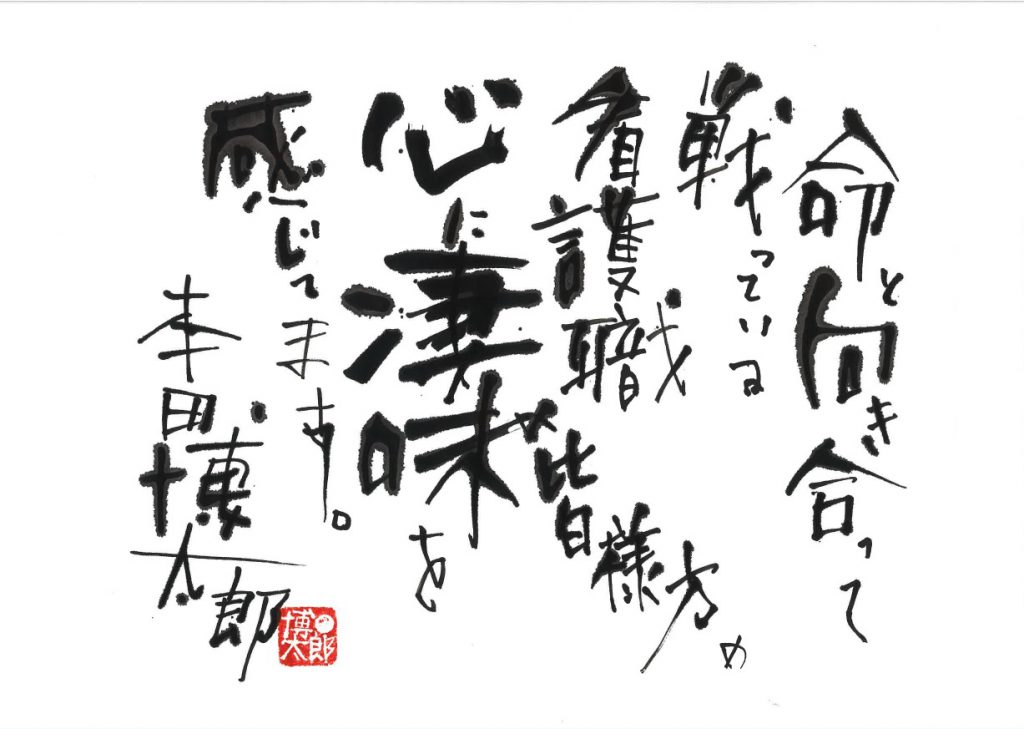 命と向き合って
戦っている
看護職皆様方の
心に凄味を
感じてます。
本田博太郎
博太郎